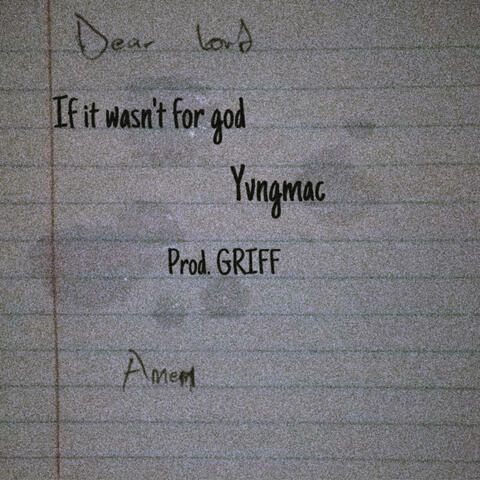 Dear Lord
If it wasn't for god
Yvngmac
Prod. GRIFF
Amen